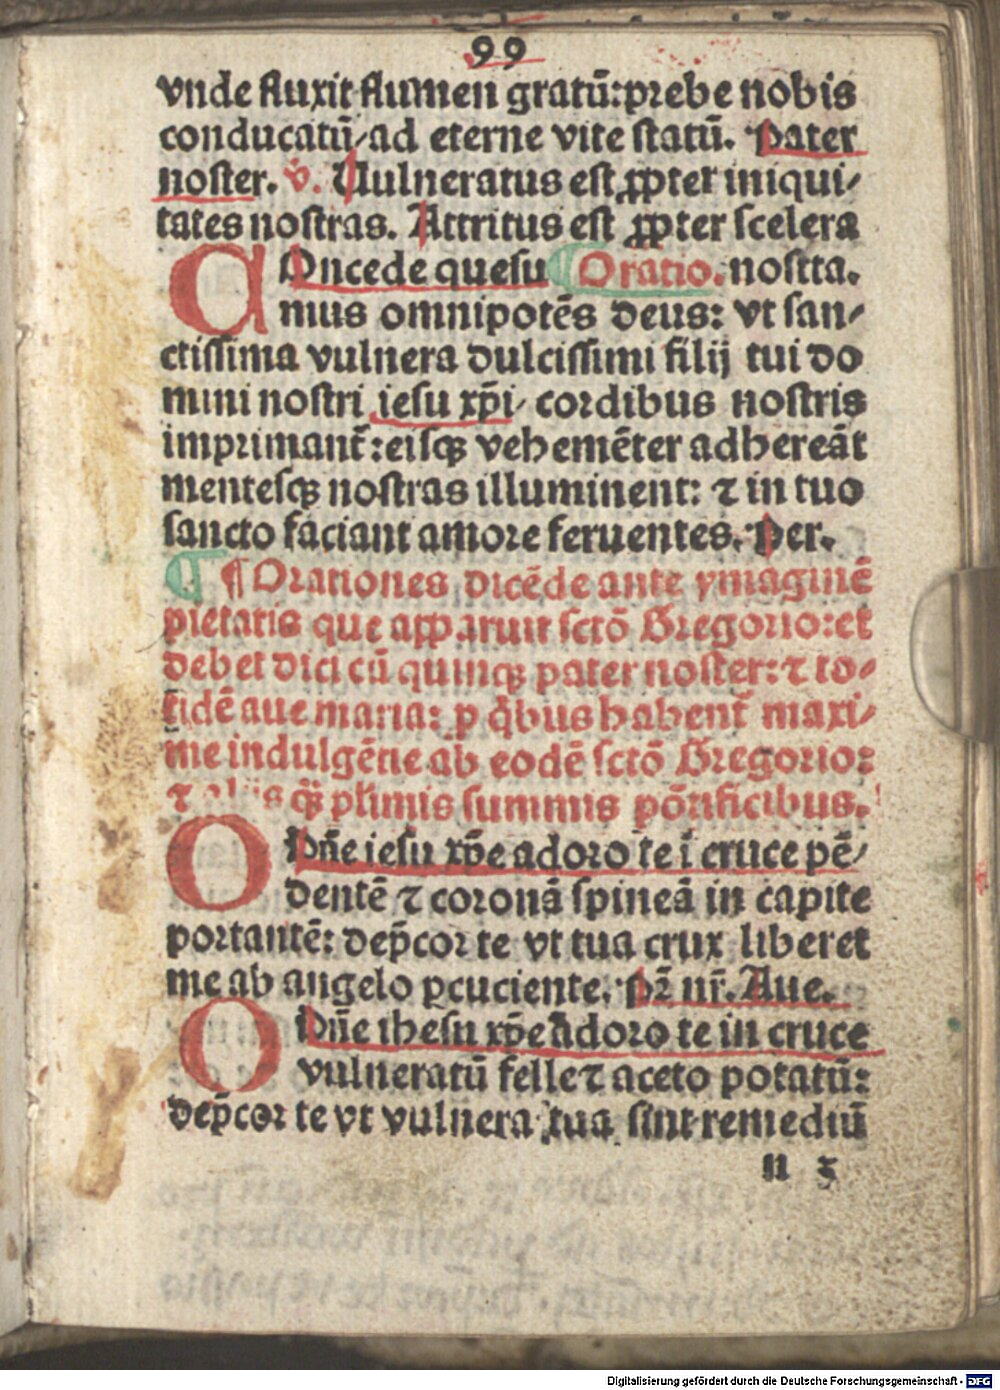 99
vnde fluxit flumen gratū: prebe nobis
conducatū/ad eterne vite statū. Pater
noster. v̄. Uulneratus est ꝓpter iniqui/
tates nostras. Attritus est ꝓpter scelera
COncede quesu ¶ Oratio. nostra.
mus omnipotēs deus: vt san/
ctissima vulnera dulcissimi filij tui do
mini nostri iesu xp̄i/ cordibus nostris
imprimant᷑: eisqꝫ vehemēter adhereāt
mentesqꝫ nostras illuminent: ⁊ in tuo
sancto faciant amore feruentes. Per.
¶ ¶ Orationes dicēde ante ymaginē
pietatis que apparuit sctō Gregorio: et
debet dici cū quinqꝫ pater noster: ⁊ to/
tidē aue maria: p q̇bus habent᷑ maxi/
me indulgētie ab eodē sctō Gregorio:
⁊ aliis qꝫ̄ pl̄imis summis pōtificibus.
ODn̄e iesu xp̄e adoro te ī cruce pē/
dentē ⁊ coronā spineā in capite
portantē: dep̄cor te vt tua crux liberet
me ab angelo ꝑcuciente. Pr̄ nr̄. Aue.
ODn̄e ihesu xp̄e adoro te in cruce
vulneratū felle ⁊ aceto potatū:
dep̄cor te vt vulnera tua sint remediū
n 3
Digitalisierung gefördert durch die Deutsche Forschungsgemeinschaft - DFG